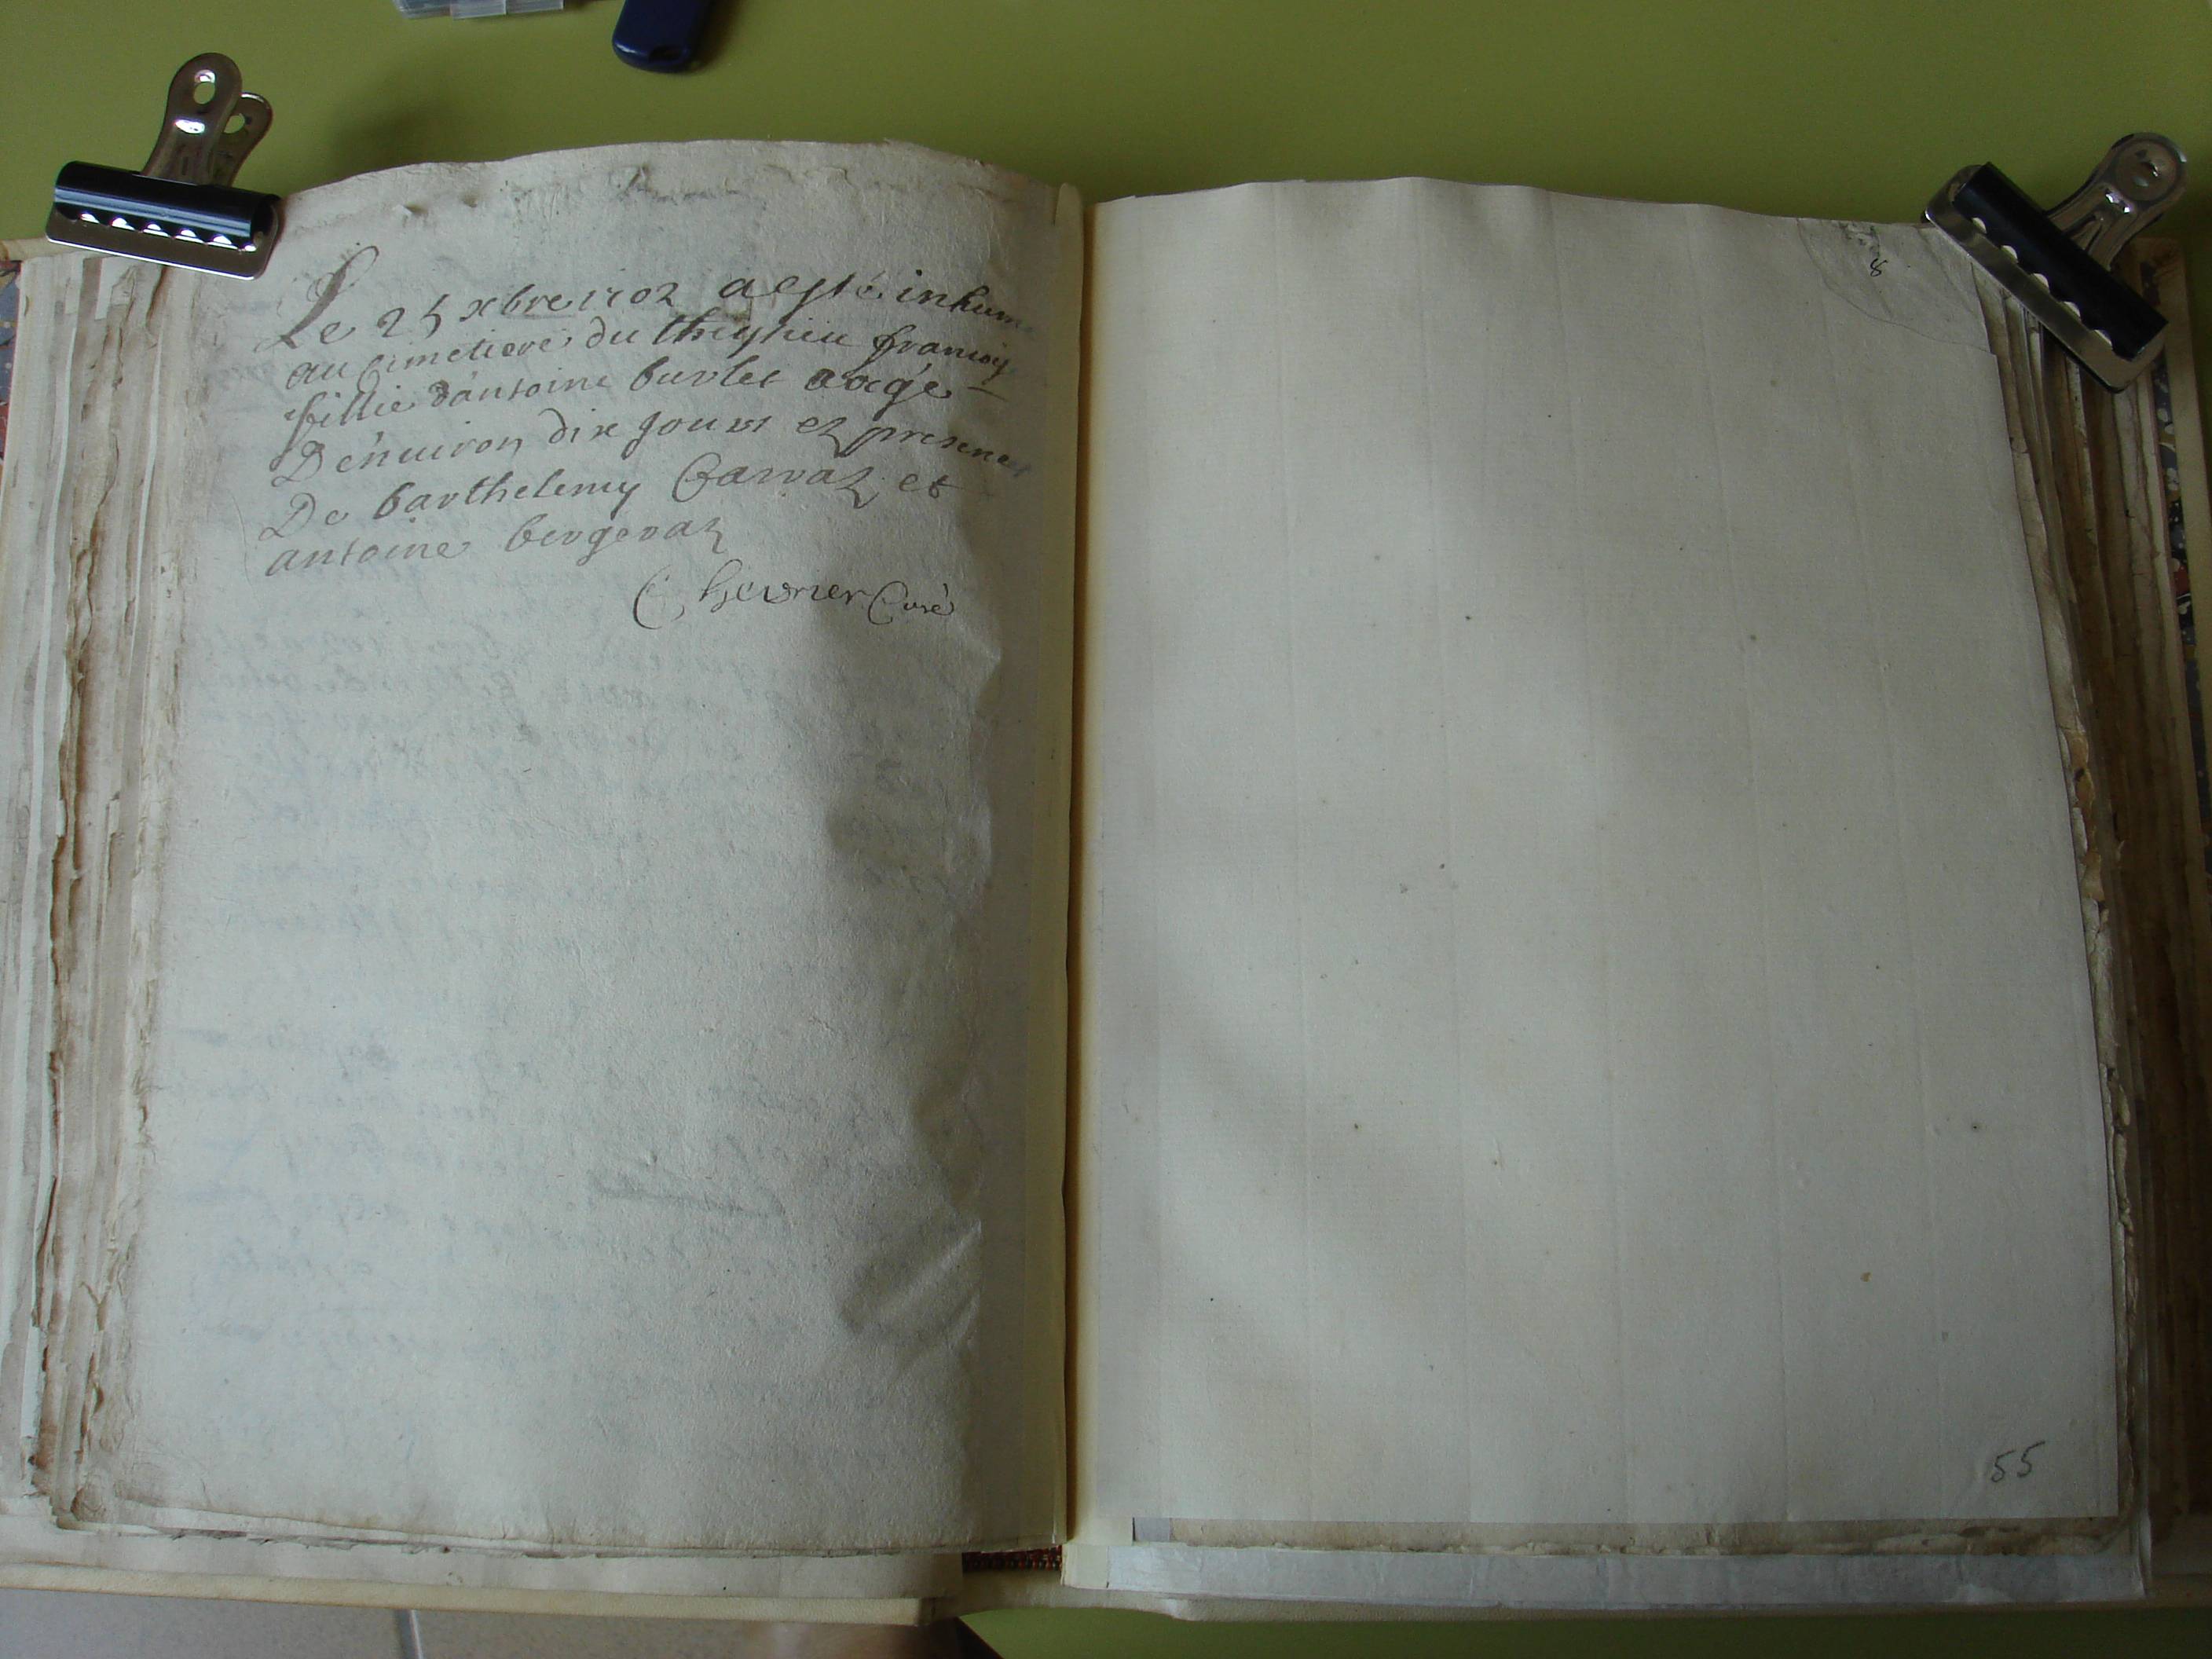 Le 25 xbre 1702 a esté inhumé
au cimetiere du françois
fillie d'antoine burlet aagé
D'enuiron dix jours en presence
De barthelemy Carraz et
antoine bergeraz
Chevrier Curé
8
55